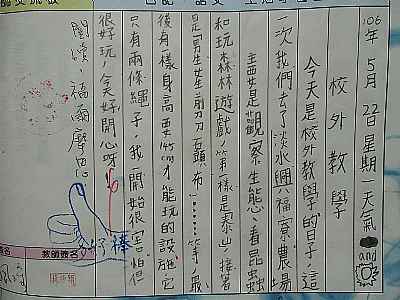 106年5月22日星期一天氣 and
校外教學
今天是校外教學的日子,這
一次我們去了淡水興福寮農場
主要是觀察生態、看昆蟲
和玩森林遊戲,第一樣是泰山,接著
是男生女生剪刀石頭布……等,最
後有一樣身高要145cm才能玩的設施,它
只有兩條繩子,我開始很害怕但
很好玩,今天好開心呀!
閱讀,福爾摩思
好棒
教師簽名